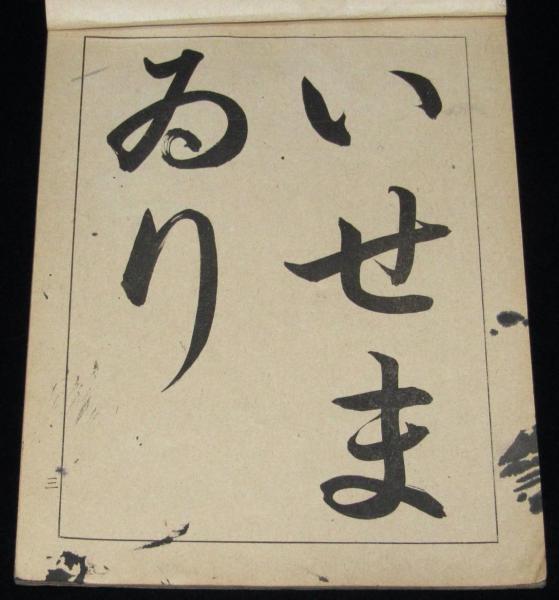 いせま
ゐり
三